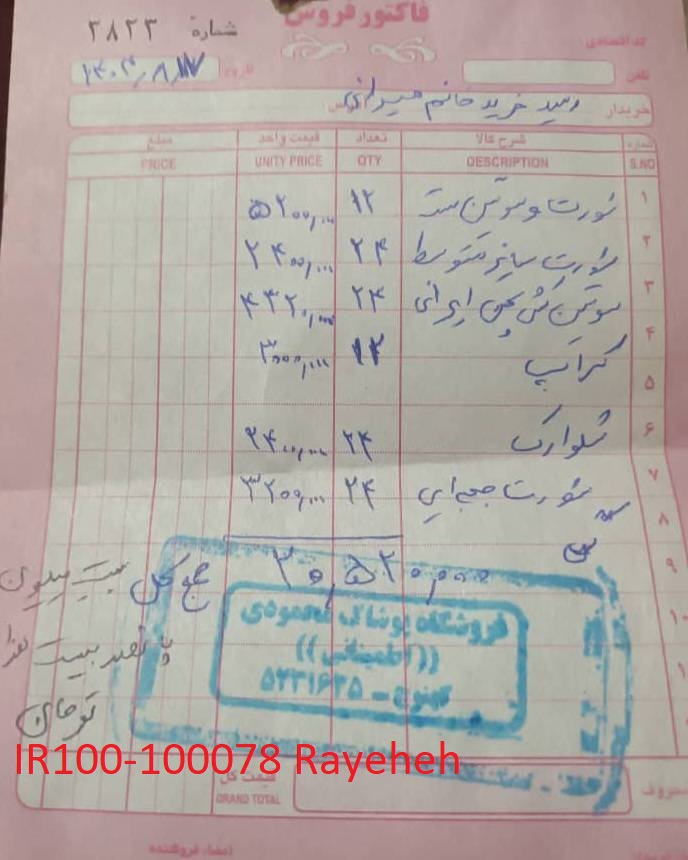 فاکتور فروش
شماره ۲۸۲۳
کد اقتصادی
تاریخ ۱۴۰۳٫۸٫۱۷
تلفن
خریدار رسید خرید خانم میرانی
شماره شرح کالا تعداد قیمت واحد مبلغ
S.NO DESCRIPTION QTY UNITY PRICE PRICE
۱ شورت و سوتین ست ۱۲ ۵۲۰۰,۰۰۰
۲ شورت سایز متوسط ۲۴ ۲۴۰۰,۰۰۰
۳ سوتین کش پهن ایرانی ۲۴ ۴۳۲۰,۰۰۰
۴ کراپ ۱۲ ۳۰۰۰,۰۰۰
۵
۶ شلوارک ۲۴ ۲۴۰۰,۰۰۰
۷ شورت جعبه‌ای ۲۴ ۳۲۰۰,۰۰۰
۸
۹ جمع کل ۲۰,۵۲۰,۰۰۰
بیست میلیون
پانصد بیست هزار
تومان
۱۰
فروشگاه پوشاک محمودی
((اطمینانی))
کهنوج - ۵۲۳۱۶۲۵
IR100-100078 Rayeheh
قیمت کل
GRAND TOTAL
حروف
امضاء فروشنده